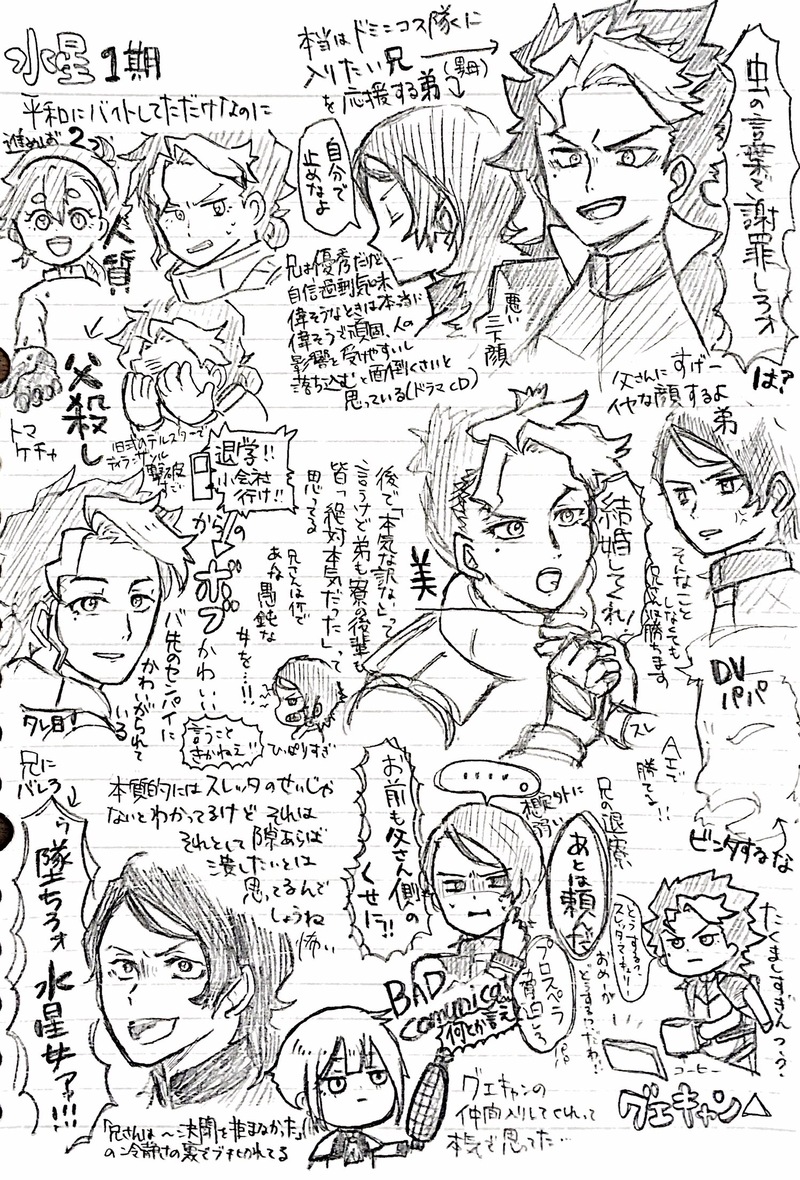 水星1期
平和にバイトしてただけなのに
進めば2つ
人質
父殺し
トマ
ケチャ
旧式のデスルターで
ディランザソル
撃破
すご
本当はドミニコス隊くに
入りたい兄
(異母)
を応援する弟
自分で
止めなよ
兄は優秀だけど
自信過剰気味
偉そうなときは本当に
偉そうで頑固、人の
影響を受けやすいし
落ち込むと面倒くさいと
思っている(ドラマCD)
悪い
三下顔
虫の言葉で謝罪しろォ
は?
父さんにすげー
イヤな顔するよ
弟
そんなこと
しなくても
兄さんは勝ちます
DV
パパ
AIで
勝てる!!
ビンタするな
退学!!
小会社
行け!!
からの
ボブ
かわいい
バ先のセンパイに
かわいがられて
いる
タレ目!
後で「本気な訳ない」って
言うけど弟も寮の後輩も
皆「絶対本気だった」って
思ってる
兄さんは何で
あね愚鈍な
女を…!!
言うこと
きかねえ!!
ひっぱりすぎ
美
結婚してくれ!
スレ
兄に
バレろ
本質的にはスレッタのせいじゃ
ないとわかってるけど それは
それとして隙あらば
潰したいとは
思ってるんで
しょうね
怖い
墜ちろォ 水星女ァァ!!!
お前も父さん側の
くせに!!
……
想定外に
弱い
兄の退寮
あとは頼んだ
プロスペラ
面白しろ
BAD
comunica
何とか言え
どうする?
スレッタ・マーキュリー
おめーが
どうするつったわ!!
たくましすぎんっ??
コーヒー
グエキャン△
グエキャンの
仲間入りしてくれって
本気で思ってた…
「兄さんは〜決闘を拒まなかった」
の冷静さの裏でブチ切れてる